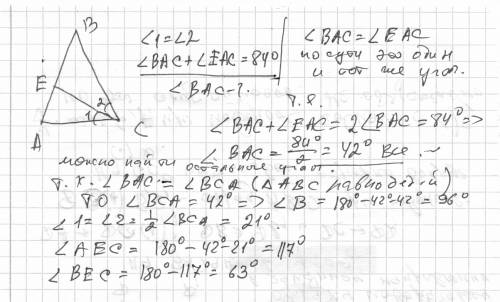 B
E
A
C
1
2
∠1=∠2
∠BAC+∠EAC=84°
∠BAC-?
∠BAC=∠EAC
по сути это один
и тот же угол.
т.к.
∠BAC+∠EAC=2∠BAC=84°=>
∠BAC=84°/2=42° Все
можно найти остальные углы.
т.к. ∠BAC=∠BCA (△ABC равнобедр.)
то ∠BCA=42°=>∠B=180°-42°-42°=96°
∠1=∠2=1/2∠BCA=21°
∠AEC=180°-42°-21°=117°
∠BEC=180°-117°=63°